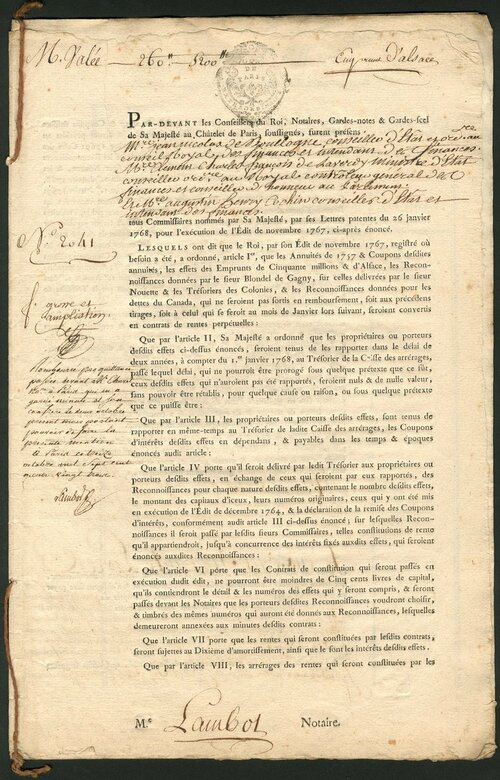 M. Valée — 260 — 5200 — Emprunt d'alsace
DE
PARIS
PAR-DEVANT les Conseillers du Roi, Notaires, Gardes-notes & Gardes-scel
de Sa Majesté au Châtelet de Paris, soussignés, furent présens
Mre Jean nicolas de Boullogne conseiller d'Etat ordre au
conseil royal des finances et intendant des finances
Mre Clement Charles françois de Laverdy ministre d'Etat
conseiller ordre au Royal controleur général des
finances et conseiller d'honneur au Parlement
et Mre augustin henry Cochin conseiller d'Etat et
intendant des finances
tous Commissaires nommés par Sa Majesté, par ses Lettres patentes du 26 janvier
1768, pour l'exécution de l'Edit de novembre 1767, ci-après énoncé.
LESQUELS ont dit que le Roi, par son Edit de novembre 1767, registré où
besoin a été, a ordonné, article Ier, que les Annuités de 1757 & Coupons desdites
annuités, les effets des Emprunts de Cinquante millions & d'Alsace, les Recon-
noissances données par le sieur Blondel de Gagny, sur celles délivrées par le sieur
Nouette & les Trésoriers des Colonies, & les Reconnoissances données pour les
dettes du Canada, qui ne seroient pas sortis en remboursement, soit aux précédens
tirages, soit à celui qui se feroit au mois de Janvier lors suivant, seroient convertis
en contrats de rentes perpétuelles:
Que par l'article II, Sa Majesté a ordonné que les propriétaires ou porteurs
desdits effets ci-dessus énoncés, seroient tenus de les rapporter dans le délai de
deux années, à compter du 1.er janvier 1768, au Trésorier de la Caisse des arrérages,
passé lequel délai, qui ne pourroit être prorogé sous quelque prétexte que ce fût,
ceux desdits effets qui n'auroient pas été rapportés, seroient nuls & de nulle valeur,
sans pouvoir être rétablis, pour quelque cause ou raison, ou sous quelque prétexte
que ce puisse être:
Que par l'article III, les propriétaires ou porteurs desdits effets, sont tenus de
rapporter en même-temps au Trésorier de ladite Caisse des arrérages, les Coupons
d'intérêts desdits effets en dépendans, & payables dans les temps & époques
énoncés audit article:
Que l'article IV porte qu'il seroit délivré par ledit Trésorier aux propriétaires ou
porteurs desdits effets, en échange de ceux qui seroient par eux rapportés, des
Reconnoissances pour chaque nature desdits effets, contenant le nombre desdits effets,
le montant des capitaux d'iceux, leurs numéros originaires, ceux qui y ont été mis
en exécution de l'Edit de décembre 1764, & la déclaration de la remise des Coupons
d'intérêts, conformément audit article III ci-dessus énoncé; sur lesquelles Recon-
noissances il seroit passé par lesdits sieurs Commissaires, telles constitutions de rentes
qu'il appartiendroit, jusqu'à concurrence des intérêts fixés auxdits effets, qui seroient
énoncés auxdites Reconnoissances:
Que l'article VI porte que les Contrats de constitution qui seront passés en
exécution dudit édit, ne pourront être moindres de Cinq cents livres de capital,
qu'ils contiendront le détail & les numéros des effets qui y seront compris, & seront
passés devant les Notaires que les porteurs desdites Reconnoissances voudront choisir,
& timbrés des mêmes numéros qui auront été donnés aux Reconnoissances, lesquelles
demeureront annexées aux minutes desdits contrats:
Que l'article VII porte que les rentes qui seront constituées par lesdits contrats,
seront sujettes au Dixième d'amortissement, ainsi que le sont les intérêts desdits effets.
Que par l'article VIII, les arrérages des rentes qui seront constituées par les
No. 2041
grosse et
ampliation
présente mention
à Paris
octobre mil sept cent
Lambot
M.e Lambot Notaire.